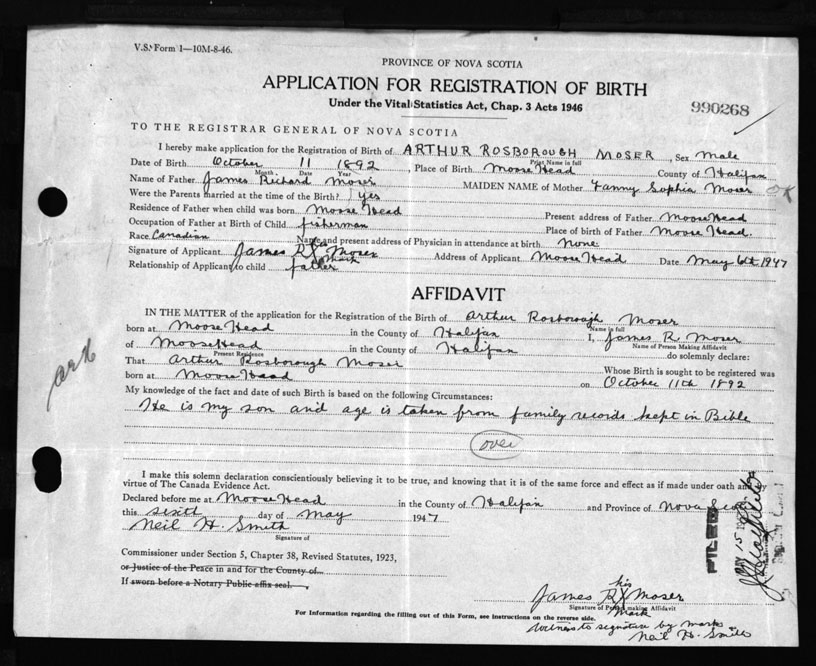 V.S. Form 1—10M-8-46.
PROVINCE OF NOVA SCOTIA
APPLICATION FOR REGISTRATION OF BIRTH
Under the Vital Statistics Act, Chap. 3 Acts 1946
990268
TO THE REGISTRAR GENERAL OF NOVA SCOTIA
I hereby make application for the Registration of Birth of ARTHUR ROSBOROUGH MOSER, Sex Male
Print Name in full
Date of Birth October 11 1892, Place of Birth Moose Head County of Halifax
Month Date Year
Name of Father James Richard Moser MAIDEN NAME of Mother Fanny Sophia Moser OK
Were the Parents married at the time of the Birth? Yes
Residence of Father when child was born Moose Head Present address of Father Moose Head
Occupation of Father at Birth of Child fisherman Place of birth of Father Moose Head.
Race Canadian Name and present address of Physician in attendance at birth None
Signature of Applicant James R X Moser Address of Applicant Moose Head Date May 6th 1947
his mark
Relationship of Applicant to child father
AFFIDAVIT
IN THE MATTER of the application for the Registration of the Birth of Arthur Rosborough Moser
Name in full
born at Moose Head in the County of Halifax I, James R Moser
Name of Person Making Affidavit
of Moose Head in the County of Halifax do solemnly declare:
Present Residence
That Arthur Rosborough Moser Whose Birth is sought to be registered was
born at Moose Head on October 11th 1892
My knowledge of the fact and date of such Birth is based on the following Circumstances:
He is my son and age is taken from family records kept in Bible
over
I make this solemn declaration conscientiously believing it to be true, and knowing that it is of the same force and effect as if made under oath and by
virtue of The Canada Evidence Act.
Declared before me at Moose Head in the County of Halifax and Province of Nova Scotia
this sixth day of May 1947
Neil H. Smith
Signature of
Commissioner under Section 5, Chapter 38, Revised Statutes, 1923,
or Justice of the Peace in and for the County of
If sworn before a Notary Public affix seal.
FILED
MAY 15
James R X Moser
his mark
Signature of Person making Affidavit
For Information regarding the filling out of this Form, see instructions on the reverse side.
Witness to signature by mark
Neil H. Smith